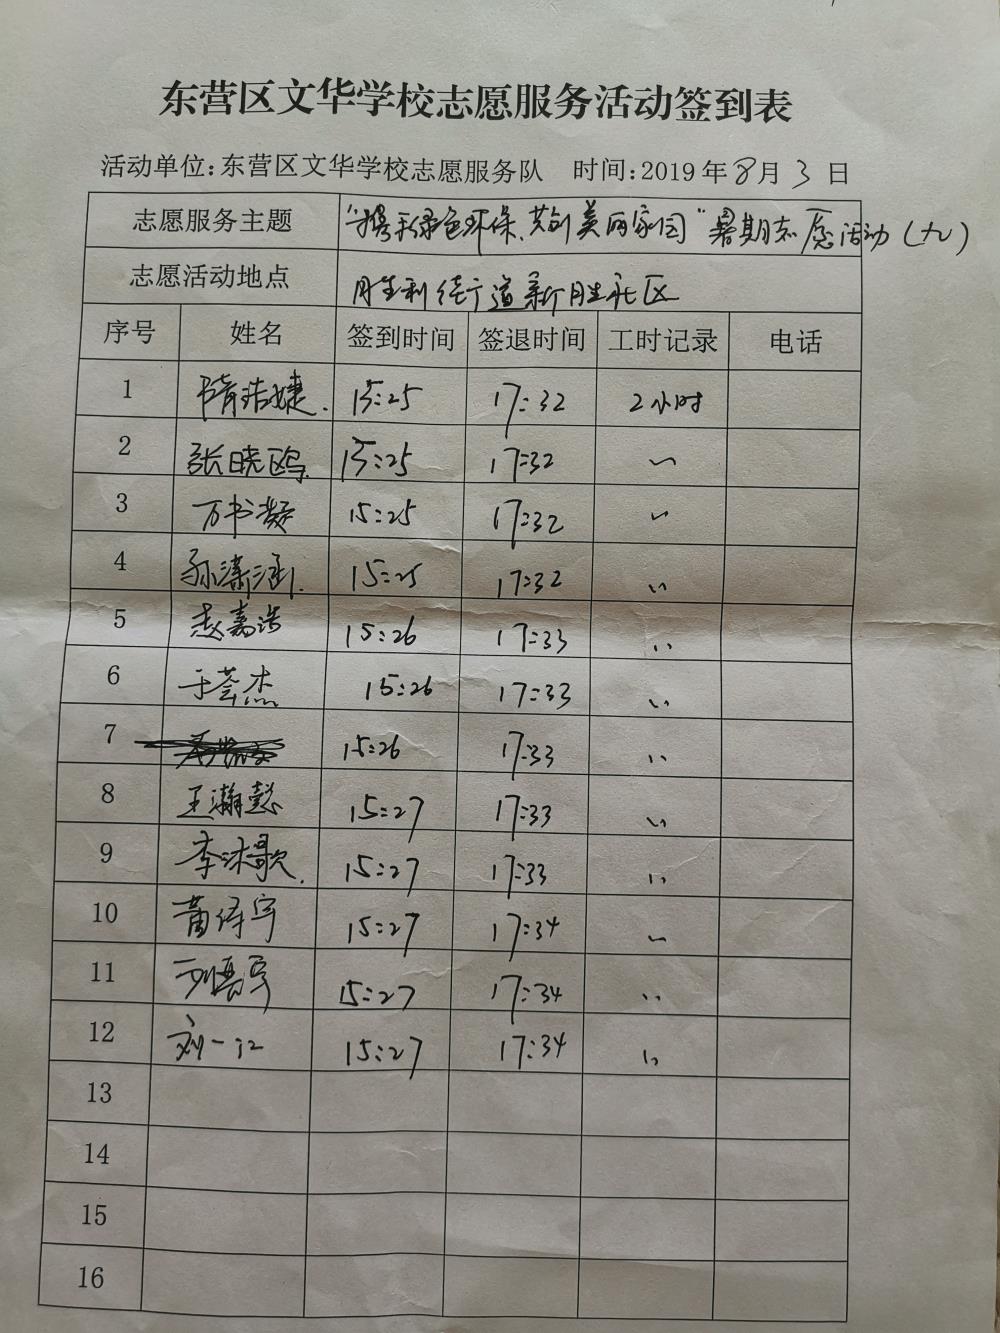 东营区文华学校志愿服务活动签到表
活动单位:东营区文华学校志愿服务队 时间:2019年8月3日
志愿服务主题 “携手绿色环保,共创美丽家园”暑期志愿活动(九)
志愿活动地点 胜利街道新胜社区
序号 姓名 签到时间 签退时间 工时记录 电话
1 隋洁婕. 15:25 17:32 2小时
2 张晓鸥. 15:25 17:32 〃
3 万书凝 15:25 17:32 〃
4 孙潇涵. 15:25 17:32 〃
5 赵嘉浩 15:26 17:33 〃
6 于荟杰 15:26 17:33 〃
7 15:26 17:33 〃
8 王瀚懿 15:27 17:33 〃
9 李沐歌. 15:27 17:33 〃
10 15:27 17:34 〃
11 15:27 17:34 〃
12 刘一江 15:27 17:34 〃
13
14
15
16